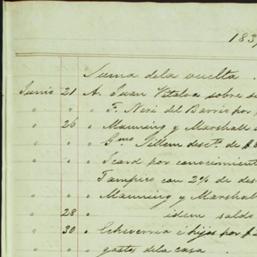 183
Suma de la vuelta
Junio 21 A. Juan Vitalva sobre s
" " " F. Neri del Barrio por
" 26 " Manning y Marshall
" " " Gmo Gillem desct. de
" " " Icard por conocimient
Tampico con 2% de des
" " " Manning y Marshal
" 28 " idem saldo
" 30 " Echeverria é hijos por
gastos de la casa